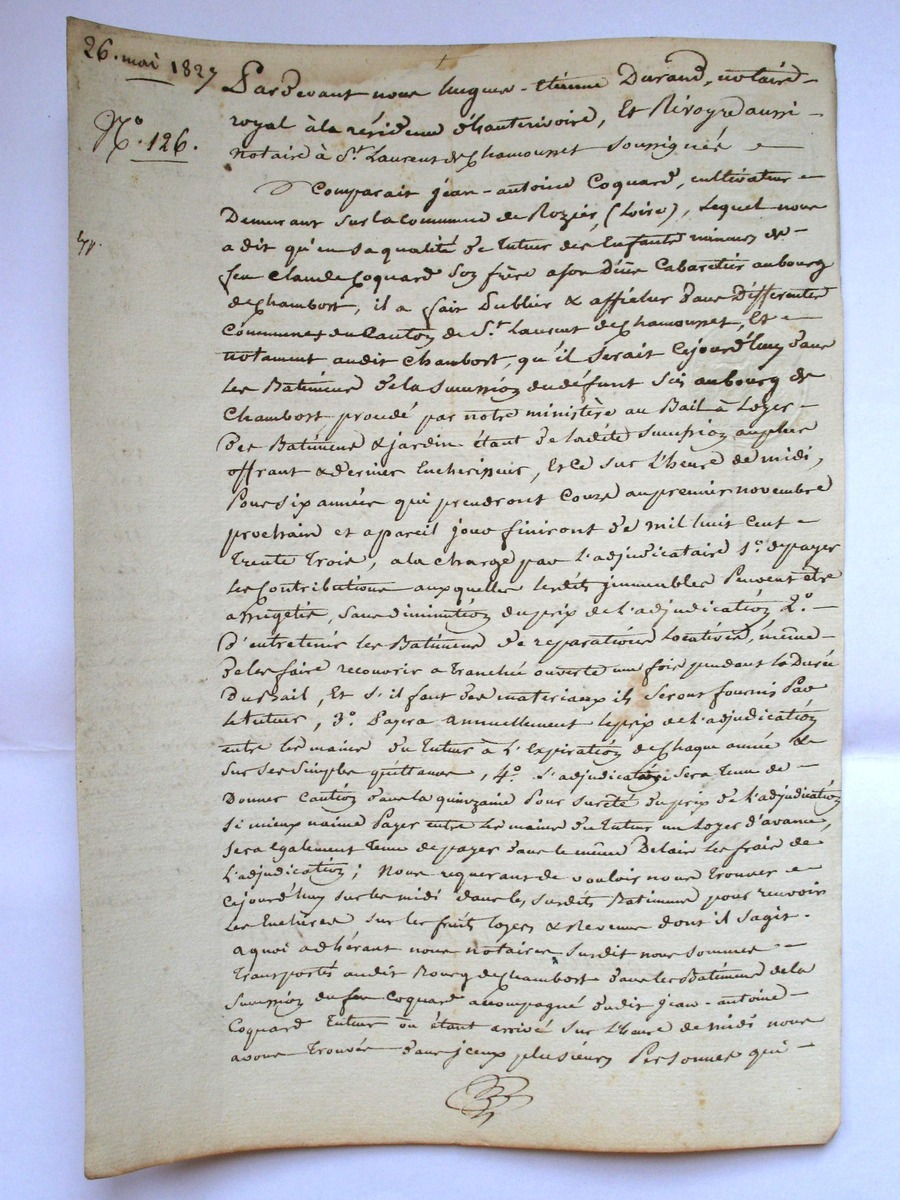 26. mai 1827
N.o 126.
Pardevant nous hugues-étienne Durand, notaire
royal à la résidence d'hauterivoire, Et Rivoyre aussi
notaire à St. Laurent de Chamousset soussignés
Comparait jean-antoine Coquard, cultivateur
Demeurant sur la commune de Rozier, (Loire), Lequel nous
a dit qu'en sa qualité de tuteur des Enfants mineurs de
feu Claude Coquard son frère a son Décès Cabaretier au bourg
de Chambost, il a fait Publier & afficher dans Differentes
Communes du Canton de St. Laurent de Chamousset, Et
notament audit Chambost, qu'il serait Cejourd'huy dans
Les Batimens de la succession du défunt sis au bourg de
Chambost procédé par notre ministère au Bail à Loyer
des Batimens & jardin étant de ladite succession au plus
offrant & dernier Encherisseur, Et ce sur l'heure de midi,
Pour six années qui prendront Cours au premier novembre
prochain et a pareil jour finiront de mil huit cent
Trente Trois, a la charge par l'adjudicataire 1.o de payer
Les Contributions auxquelles lesdits immeubles Peuvent être
assugetis, sans diminution du prix de l'adjudication 2.o
D'entretenir les Batimens de reparations locatives, même
de les faire recouvrir a tranché ouverte une fois pendant la Durée
Du Bail, Et s'il faut des materiaux ils seront fournis Par
le tuteur, 3.o Payera annuellement le prix de l'adjudication
entre les mains du tuteur à l'Expiration de chaque année &
sur ses simples quittances, 4.o L'adjudicataire sera tenu de
Donner Caution dans la quinzaine Pour sureté du prix de l'adjudication
si mieux n'aime Payer entre les mains du tuteur un Loyer d'avance,
sera également tenu de payer dans le même Delai les frais de
L'adjudication; Nous requerant de vouloir nous trouver
Cejourd'huy sur les midi dans les susdits Batimens pour recevoir
Les Encheres sur les fruits loyers & Revenus dont il s'agit.
a quoi adhérant nous notaires susdit nous sommes
Transportés audit Bourg de Chambost dans les Batimens de la
succession du feu Coquard accompagné dudit jean-antoine
Coquard Tuteur où étant arrivé sur l'heure de midi nous
avons trouvés dans jceux plusieurs Personnes qui